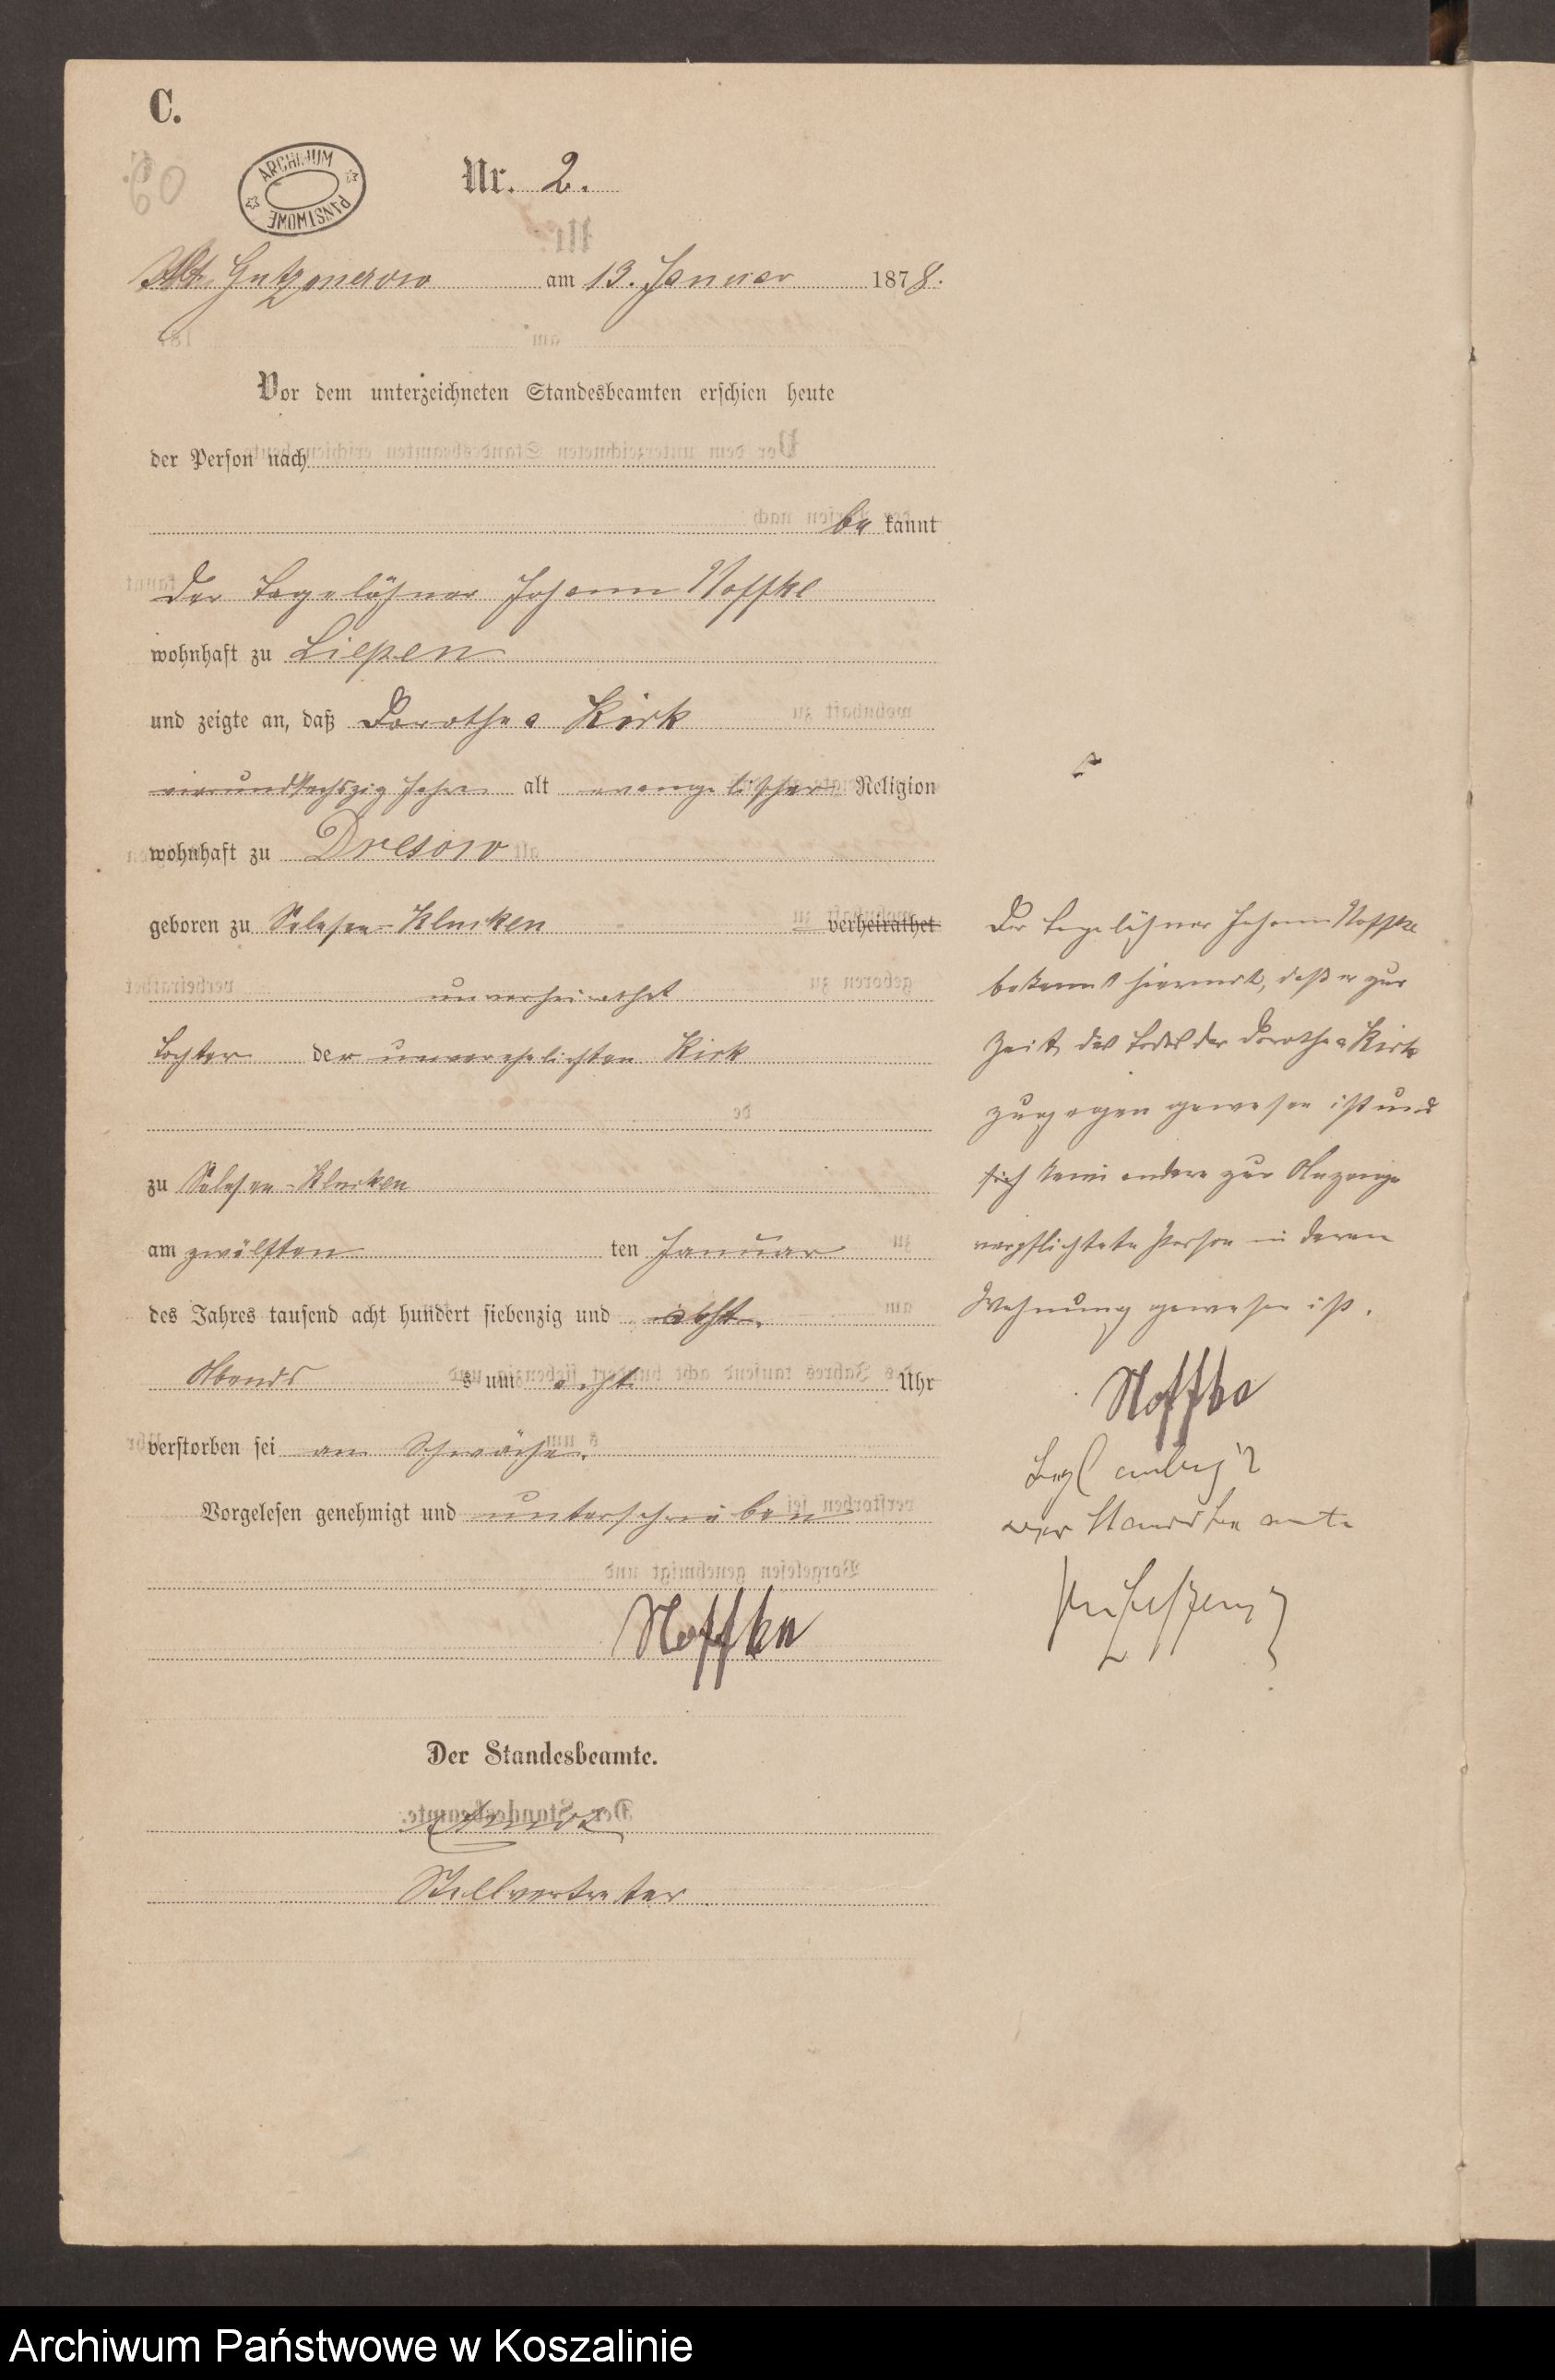 C.
ARCHIWUM PAŃSTWOWE
Nr. 2.
Gutzmerow am 13. Januar 1878.
Vor dem unterzeichneten Standesbeamten erschien heute
der Person nach
be kannt
der Tagelöhner Johann Noffke
wohnhaft zu Liepen
und zeigte an, daß Dorothea Kirk
vierundsechszig Jahre alt evangelischer Religion
wohnhaft zu Dresow
geboren zu Selesen-Klucken verheirathet
unverheirathet
Tochter der unverehelichten Kirk
zu Selesen-Klucken
am zwölften ten Januar
des Jahres tausend acht hundert siebenzig und acht.
Abends s um acht Uhr
verstorben sei an Schwäche.
Vorgelesen genehmigt und unterschrieben
Noffke
Der Standesbeamte.
Stellvertreter
Der Tagelöhner Johann Noffke
bekennt hiermit, daß er zur
Zeit des Todes der Dorothea Kirk
zugegen gewesen ist und
sich keine andere zur Anzeige
verpflichtete Person in deren
Wohnung gewesen ist.
Noffke
Archiwum Państwowe w Koszalinie